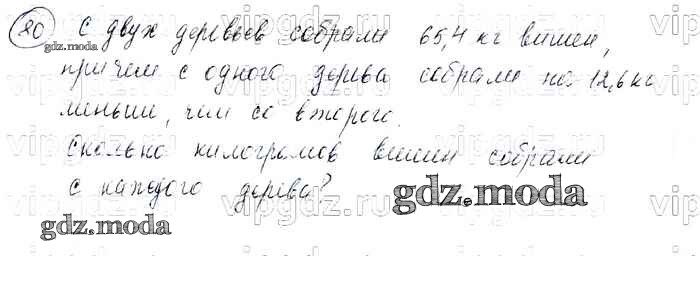 20 С двух деревьев собрали 65,4 кг вишен,
причем с одного дерева собрали на 12,6 кг
меньше, чем со второго.
Сколько килограмов вишен собрали
с каждого дерева?
gdz.moda
gdz.moda
gdz.moda
vipgdz.ru